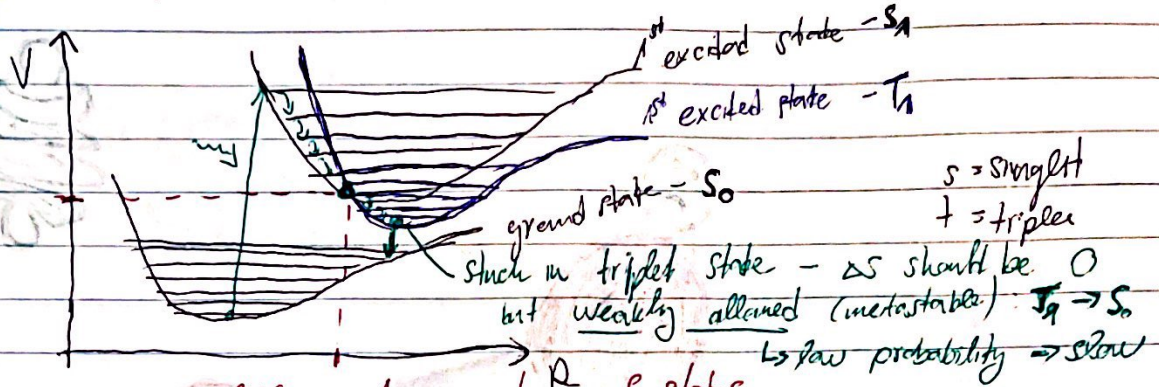 V
1st excited state - S1
1st excited state - T1
ground state - S0
s = singlet
t = triplet
stuck in triplet state - ΔS should be 0
but weakly allowed (metastable) T1 → S0
↳ low probability → slow
R